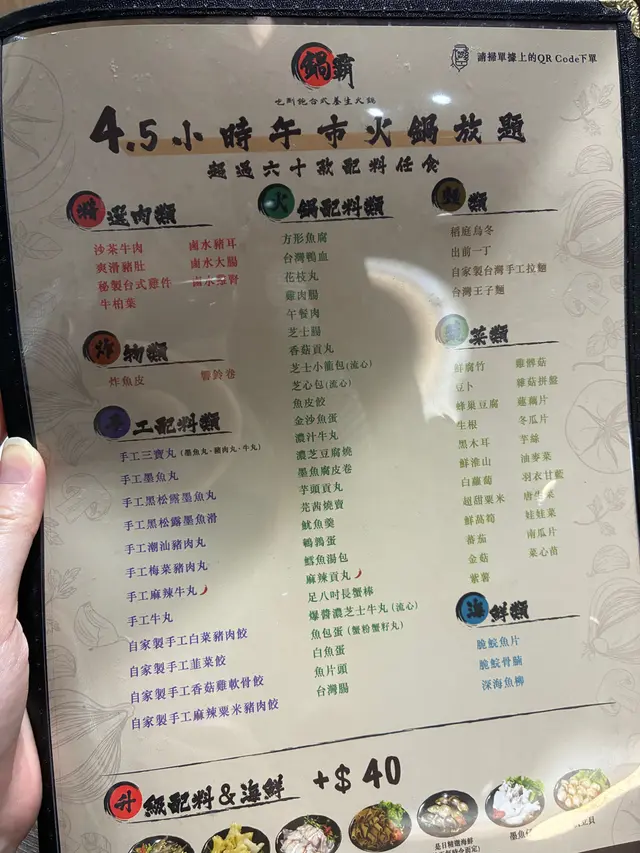 鍋霸
吃到飽台式養生火鍋
請掃單據上的QR Code下單
4.5小時午市火鍋放題
超過六十款配料任食
精選肉類
沙茶牛肉
爽滑豬肚
秘製台式雞件
牛柏葉
鹵水豬耳
鹵水大腸
炸物類
炸魚皮
響鈴卷
手工配料類
手工三寶丸(墨魚丸、豬肉丸、牛丸)
手工墨魚丸
手工黑松露墨魚丸
手工黑松露墨魚滑
手工潮汕豬肉丸
手工梅菜豬肉丸
手工麻辣牛丸
手工牛丸
自家製手工白菜豬肉餃
自家製手工韮菜餃
自家製手工香菇雞軟骨餃
自家製手工麻辣粟米豬肉餃
火鍋配料類
方形魚腐
台灣鴨血
花枝丸
雞肉腸
午餐肉
芝士腸
香菇貢丸
芝士小龍包(流心)
芝心包(流心)
魚皮餃
金沙魚蛋
濃汁牛丸
濃芝豆腐燒
墨魚腐皮卷
芋頭貢丸
芫茜燒賣
魷魚羹
鵪鶉蛋
鱈魚湯包
麻辣貢丸
足八吋長蟹棒
爆醬濃芝士牛丸(流心)
魚包蛋(蟹粉蟹籽丸)
白魚蛋
魚片頭
台灣腸
類
稻庭烏冬
出前一丁
自家製台灣手工拉麵
台灣王子麵
菜類
鮮腐竹
豆卜
蜂巢豆腐
生根
黑木耳
鮮淮山
白蘿蔔
超甜粟米
鮮萵筍
蕃茄
金菇
紫薯
雞髀菇
雜菇拼盤
蓮藕片
冬瓜片
芋絲
油麥菜
羽衣甘藍
唐生菜
娃娃菜
南瓜片
菜心苗
海鮮類
脆鯇魚片
脆鯇骨腩
深海魚柳
升級配料&海鮮 +$40
是日精選海鮮